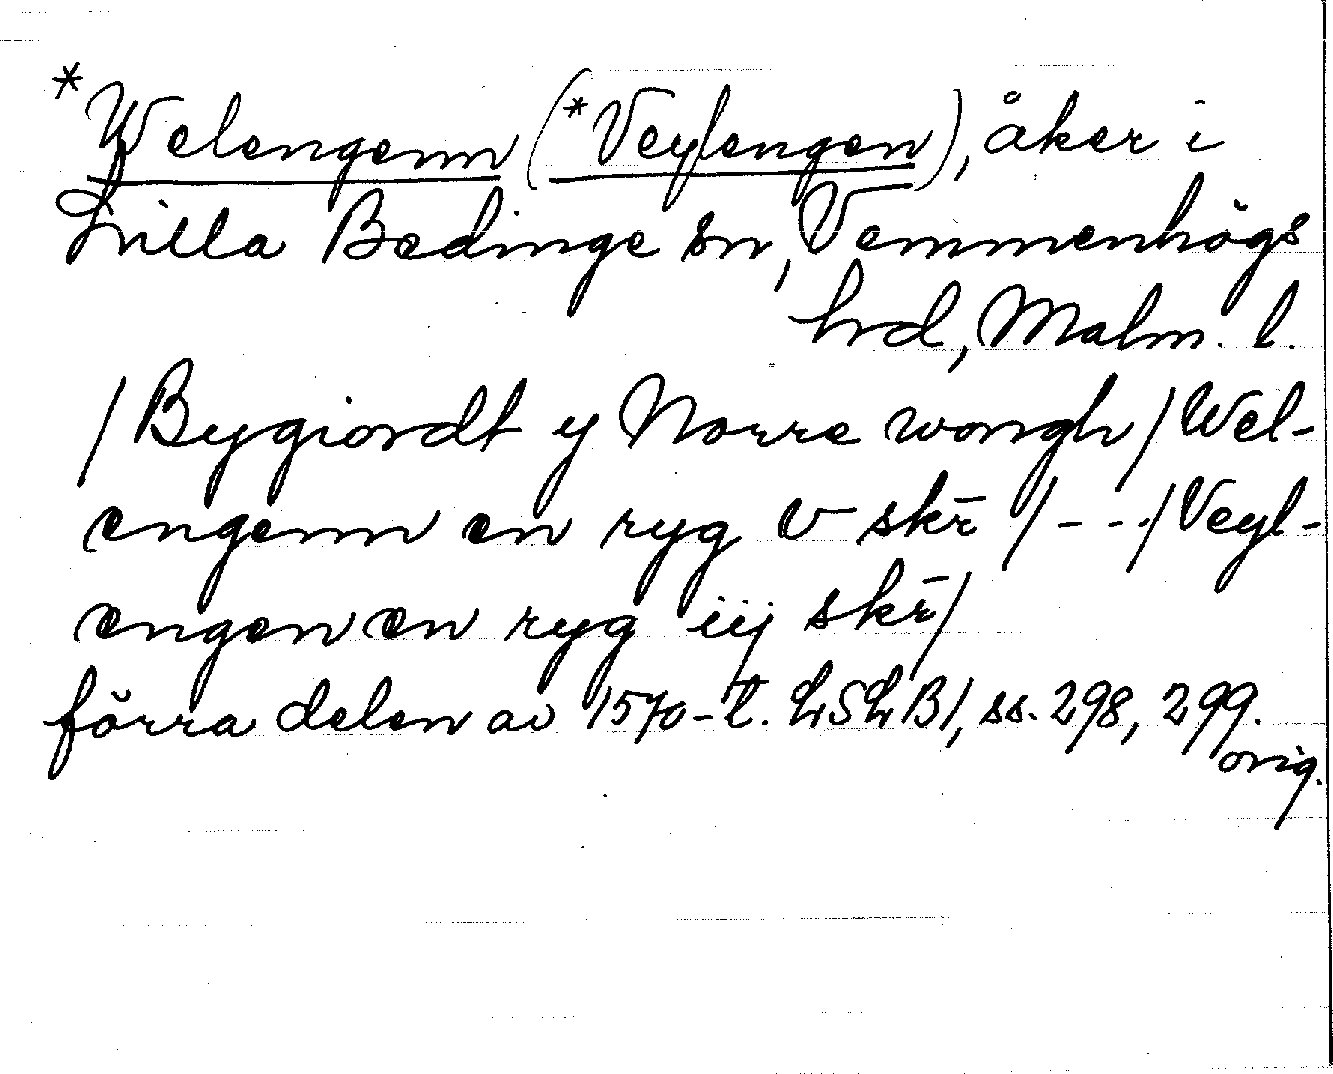 *Welengenn (*Veylengen), åker i
Lilla Bedinge sn, Vemmenhögs
hrd, Malm. l.
/Bygiordt y Norre wongh/Wel-
engenn en ryg V skr̄ /---/Veyl-
engen en ryg iij skr̄/
förra delen av 1570-t. LSLB1, ss. 298, 299.
orig.